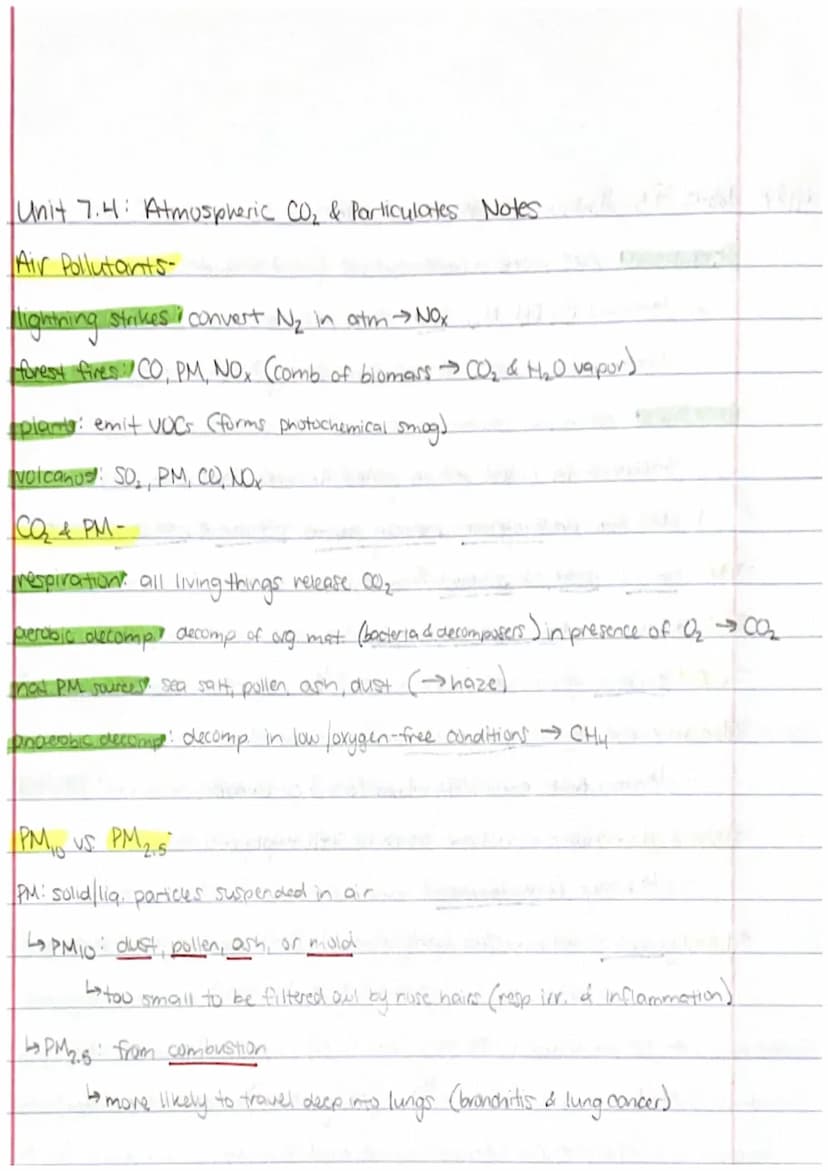 Unit 7.4: Atmospheric CO₂ & Particulates Notes
Air Pollutants-
lightning strikes: convert N₂ in atm → NOₓ
forest fires: CO, PM, NOₓ (comb of biomass → CO₂ & H₂O vapor)
plants: emit VOCs (forms photochemical smog)
volcanos: SO₂, PM, CO, NOₓ
CO₂ & PM-
respiration: all living things release CO₂
aerobic decomp: decomp of org mat. (bacteria & decomposers) in presence of O₂ → CO₂
nat PM sources: sea salt, pollen, ash, dust (→ haze)
anaerobic decomp: decomp in low/oxygen-free conditions → CH₄
PM₁₀ vs PM₂.₅-
PM: solid/liq. particles suspended in air
↳ PM₁₀: dust, pollen, ash, or mold
↳ too small to be filtered out by nose hairs (resp irr. & inflammation)
↳ PM₂.₅: from combustion
↳ more likely to travel deep into lungs (bronchitis & lung cancer)